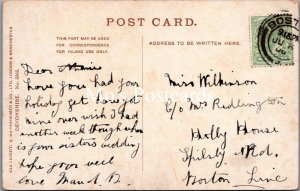 POST CARD.
THIS SPACE MAY BE USED
FOR CORRESPONDENCE
FOR INLAND USE ONLY.
ADDRESS TO BE WRITTEN HERE.
DEVONSHIRE.
Dear
have you had your
holiday yet have got
mine over wish I had
another week though
is your sisters wedding
hope your well
love Maud
Miss Wilkinson
c/o Mrs Reddington
Holly House
Spilsby Rd.
Boston Linc
BOST
JU